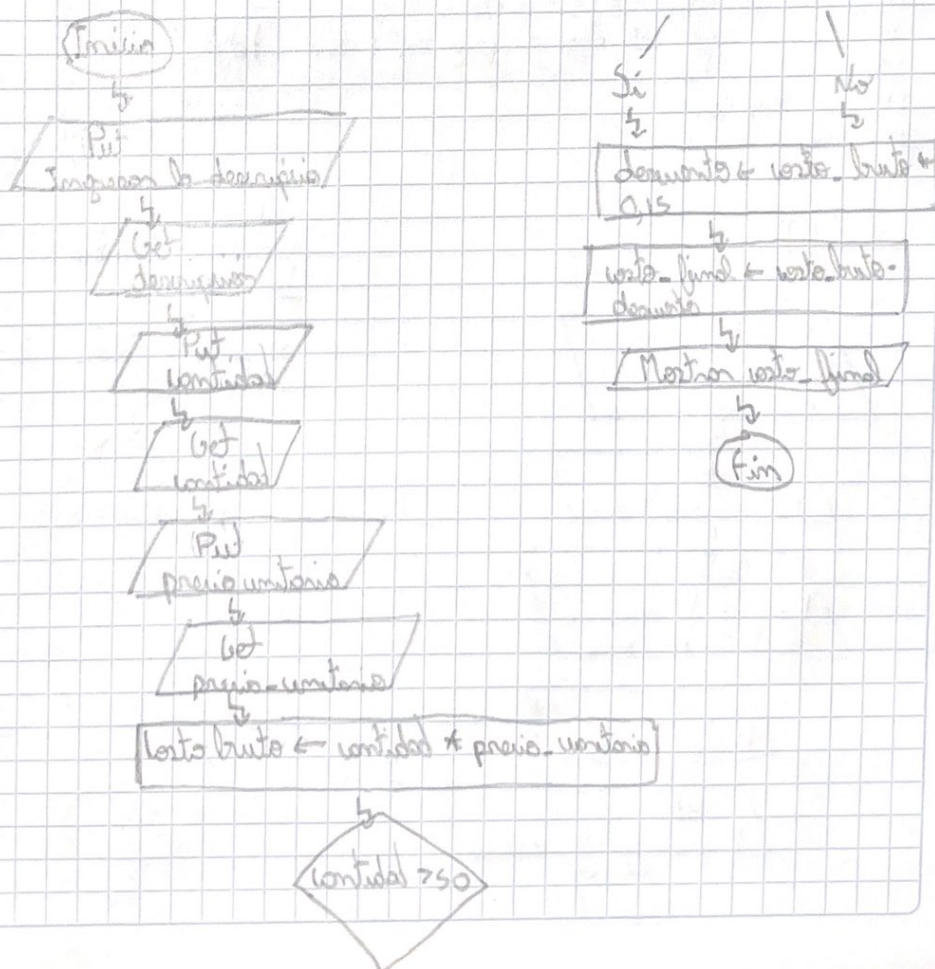 Inicio
Put
Ingresar la descripció
Get
descripción
Put
cantidad
Get
cantidad
Put
precio unitario
Get
precio_unitario
Costo bruto ← cantidad * precio_unitario
cantidad >50
Si No
descuento ← costo_bruto *
0,15
costo_final ← costo_bruto-
descuento
Mostrar costo_final
Fin